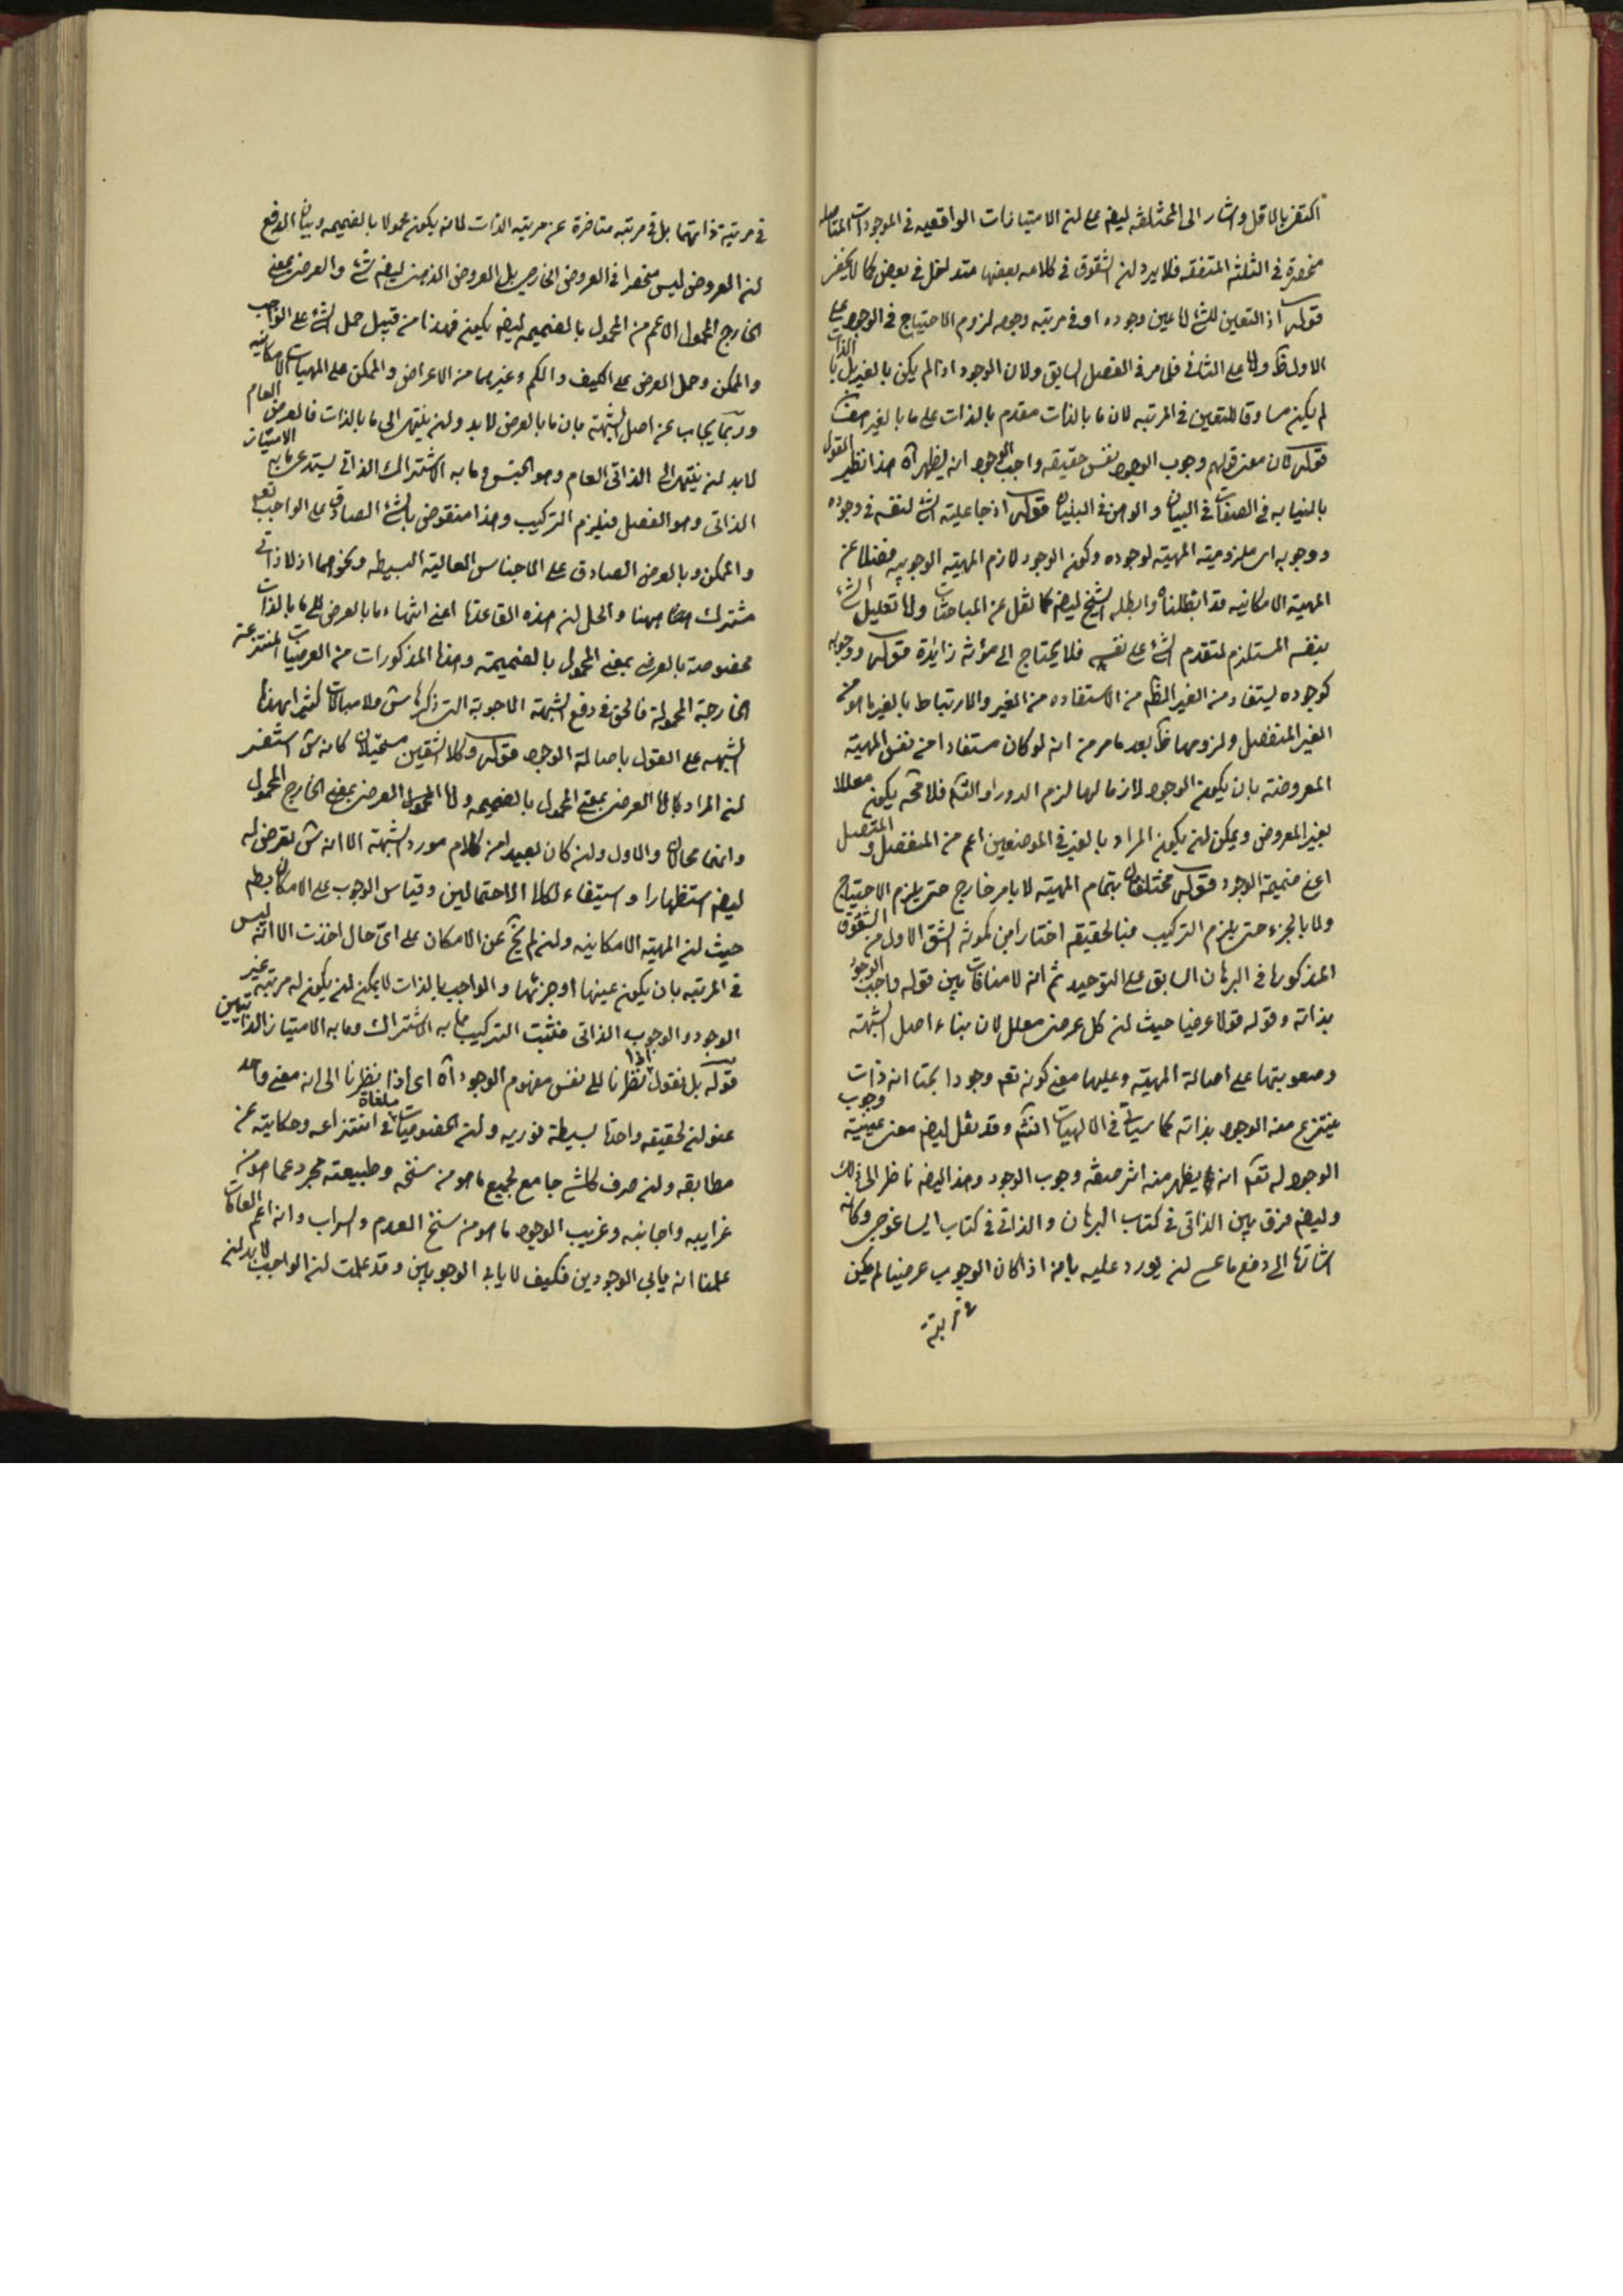 اكتفى بالاقل واشار الى المختلفة ليضه على ان الامتيازات الواقعيه فى الموجودات المتاصله
منحصرة فى الثلثة المتفقه فلا يرد ان الشقوق فى كلامه بعضها متداخل فى بعض كما لا يخفى
قوله اذ التعين للشئ اما عين وجوده او فى مرتبه وجوده لزوم الاحتياج فى الوجود على
الاول ظ واما على الثانى فلما مر فى الفصل السابق ولان الوجود اذا لم يكن بالغير بل بالذات
لم يكن مساوقا للتعين فى المرتبه لان ما بالذات مقدم بالذات على ما بالغير
قوله كان معنى قولهم وجوب الوجود نفس حقيقه واجب الوجود انه يظهر آه هذا نظير القول
بالنيابه فى الصفات فى البيان والوهن فى البنيان قوله اذ جاعلية الشئ لنفسه فى وجوده
ووجوبه اى ملزومية المهية لوجوده وكون الوجود لازم المهية الوجوبيه فضلا عن
المهية الامكانيه قد ابطلناه وابطله الشيخ ليضه كما نقل عن المباحثات واما تعليل الشئ
بنفسه المستلزم لتقدم الشئ على نفسه فلا يحتاج الى مؤنة زايدة قوله ووجوبه
كوجوده يستفاد من الغير الظ من الاستفاده من الغير والارتباط بالغير ما هو من
الغير المنفصل ولزومها ظ بعد ما مر من انه لو كان مستفادا من نفس المهية
المعروضة بان يكون الوجود لازما لها لزم الدور او التس فلا محه يكون معللا
بغير المعروض ويمكن ان يكون المراد بالغير فى الموضعين اعم من المنفصل والمتصل
اعنى ضميمة الوجود قوله مختلفان بتمام المهية لا بامر خارج حتى يلزم الاحتياج
ولا بالجزء حتى يلزم التركيب فبالحقيقه اختار ابن كمونه الشق الاول من الشقوق
المذكوره فى البرهان السابق على التوحيد ثم انه لا منافات بين قوله واجب الوجود
بذاته وقوله قولا عرضيا حيث ان كل عرضى معلل لان بناء اصل الشبهة
وصعوبتها على اصالة المهية وعليها معنى كونه تعم وجودا بحتا انه ذات
ينتزع منه الوجود بذاته كما سياتى فى الالهيات انشم وقد نقل ليضه معنى عينية وجوب
الوجود له تعم انه يظهر منه اثر صفة وجوب الوجود وهذا ليضه ناظر الى ذلك
وليضه فرق بين الذاتى فى كتاب البرهان والذاتى فى كتاب ايساغوجى وكانه
اشارة الى دفع ما عسى ان يورد عليه بانه اذا كان الوجوب عرضيا لم يكن
فى مرتبة
فى مرتبة ذاتهما بل فى مرتبه متاخرة عن مرتبه الذات لانه يكون محمولا بالضميمه وبيان الدفع
ان العروض ليس منحصرا فى العروض الخارجى بل العروض الذهنى ليضه شئ والعرضى بمعنى
الخارج المحمول الاعم من المحمول بالضميمه ليضه يكون فهذا من قبيل حمل الشئ على الواجب
والممكن وحمل العرض على الكيف والكم وغيرهما من الاعراض والممكن على المهيات الامكانيه
وربما يجاب عن اصل الشبهة بان ما بالعرض لا بد وان ينتهى الى ما بالذات فالعرضى العام
لا بد ان ينتهى الى الذاتى العام وهو الجنس وما به الاشتراك الذاتى يستدعى ما به الامتياز
الذاتى وهو الفصل فيلزم التركيب وهذا منقوض بالشئ الصادق على الواجب تعم
والممكن وبالعرض الصادق على الاجناس العالية البسيطه ونحوهما اذ لا ذاتى
مشترك هنا والحل ان هذه القاعدة اعنى انتهاء ما بالعرض الى ما بالذات
مخصوصة بالعرضى بمعنى المحمول بالضميمة وهذا المذكورات من العرضيات المنتزعة
الخارجة المحمولة فالحق فى دفع الشبهة الاجوبة التى ذكرها س ولا مبالات كثيرا بهذه
الشبهه على القول باصالة الوجود قوله وكلا الشقين مستحيلان كانه س استشعر
ان المراد اما العرضى بمعنى المحمول بالضميمه واما المحمول العرضى بمعنى الخارج المحمول
وانهما محالان والاول وان كان بعيدا من كلام مورد الشبهة الا انه س تعرض له
ليضه استظهارا واستيفاء لكلا الاحتمالين وقياس الوجوب على الامكان بط
حيث ان المهية الامكانيه وان لم تخ عن الامكان على اى حال اخذت الا انه ليس
فى المرتبه بان يكون عينها او جزئها والواجب بالذات لا يمكن ان يكون له مرتبة غير
الوجود والوجوب الذاتى فثبت التركيب مما به الاشتراك وما به الامتياز الذاتيين
قوله بل نقول اذا نظرنا الى نفس مفهوم الوجود آه اى اذا نظرنا الى انه معنى واحد
عنوان لحقيقه واحدة بسيطة نوريه وان الخصوصيات ملغاة فى انتزاعه وحكايته عن
مطابقه وان صرف كل شئ جامع لجميع ما هو من سنخه وطبيعته مجرد عما هو من
غرايبه واجانبه وغريب الوجود ما هو من سنخ العدم والسراب وانه اعم العامات
علمنا انه يابى الوجودين فكيف لا يابى الوجوبين وقد علمت ان الواجب لا بد ان